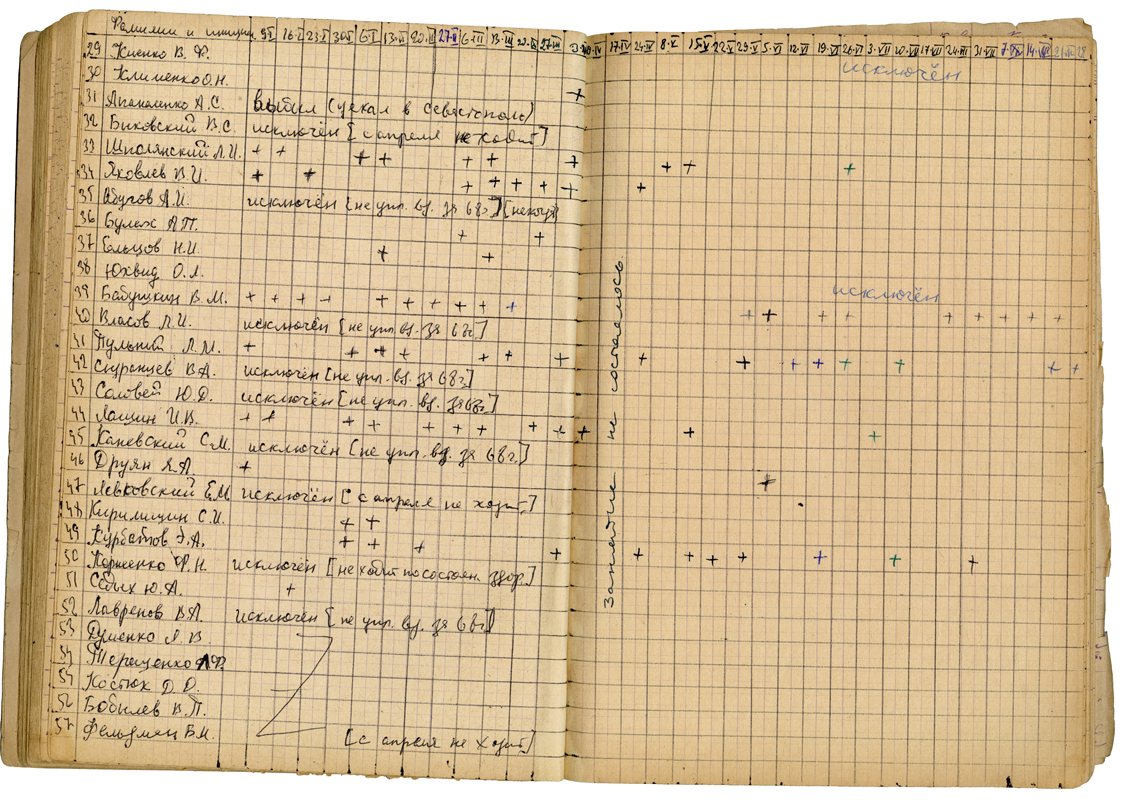 Фамилии и 9·I 16·I 23·I 30·I 6·I 13·II 20·II 27·II 6·III 13·III 27·III 17·IV 24·IV 8·V 15·V 22·V 29·V 5·VI 12·VI 19·VI 26·VI 3·VII 10·VII 17·VII 24·VII 31·VII
29 Киенко В. Ф. исключён
30 Клименко О.Н. +
31 А.С. выбыл (уехал в Севастополь)
32 Биковский В.С. исключён [с апреля не ходит]
33 Шполянский Л.И. + + + + + + + + + +
34 Яковлев В.И. + + + + + + + +
35 А.И. исключён [не упл. вз. за 68г.]
36 Булах А.П. + +
37 Ельцов Н.И. + +
38 Юхвид О.Л. исключён
39 Бабушкин В.М. + + + + + + + + + + + + + + + + + + +
40 Власов Л.И. исключён [не упл. вз. за 68г.]
41 Л.М. + + + + + + + + + + + + + + +
42 В.А. исключён [не упл. вз. за 68г.]
43 Соловей Ю.Д. исключён [не упл. вз. за 68г.]
44 Лащин И.В. + + + + + + + + + + + +
45 Каневский С.М. исключён [не упл. вз. за 68г.]
46 Друян Я.А. + +
47 Левковский Е.М. исключён [с апреля не ходит]
48 Кирилицин С.И. + +
49 Курбатов Э.А. + + + + + + + + + + +
50 Ф.Н. исключён [не ходит по состоян. здор.]
51 Седых Ю.А. +
52 Лавренов В.А. исключён [не упл. вз. за 68г.]
53 Душенко Л. В.
54 Терещенко А.Ф.
54 Костюк Д.Д.
56 Бобылев В.П.
57 Фельдман Б.И. [с апреля не ходит]
Занятие не состоялось